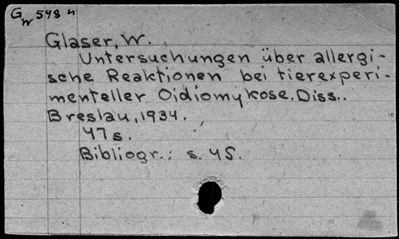 Gw 548 u
Glaser, W.
Untersuchungen über allergi-
sche Reaktionen bei tierexperi-
menteller Oidiomykose. Diss..
Breslau, 1934.
47 s.
Bibliogr.: s. 45.